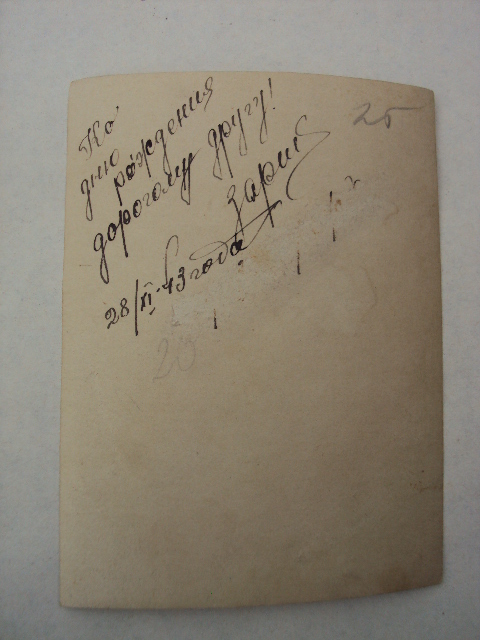 Ко
дню
рождения
дорогому другу!
28/XI-43 года
25
20